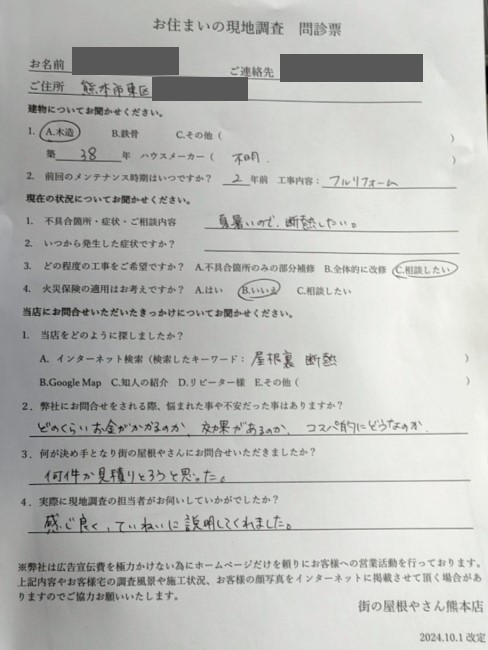 お住まいの現地調査　問診票
お名前　ご連絡先
ご住所　熊本市東区
建物についてお聞かせください。
1. A.木造　B.鉄骨　C.その他（　）
築 38 年　ハウスメーカー（　不明.　）
2. 前回のメンテナンス時期はいつですか？ 2 年前　工事内容：フルリフォーム
現在の状況についてお聞かせください。
1. 不具合箇所・症状・ご相談内容　夏暑いので、断熱したい。
2. いつから発生した症状ですか？
3. どの程度の工事をご希望ですか？ A.不具合箇所のみの部分補修　B.全体的に改修　C.相談したい
4. 火災保険の適用はお考えですか？ A.はい　B.いいえ　C.相談したい
当店にお問合せいただいたきっかけについてお聞かせください。
1. 当店をどのように探しましたか？
A. インターネット検索（検索したキーワード：屋根裏 断熱　）
B.Google Map　C.知人の紹介　D.リピーター様　E.その他（　）
2. 弊社にお問合せをされる際、悩まれた事や不安だった事はありますか？
どのくらいお金がかかるのか、効果があるのか、コスパ的にどうなのか.
3. 何が決め手となり街の屋根やさんにお問合せいただきましたか？
何件か見積りとろうと思った。
4. 実際に現地調査の担当者がお伺いしていかがでしたか？
感じ良く、ていねいに説明してくれました。
※弊社は広告宣伝費を極力かけない為にホームページだけを頼りにお客様への営業活動を行っております。
上記内容やお客様宅の調査風景や施工状況、お客様の顔写真をインターネットに掲載させて頂く場合があ
りますのでご協力お願いいたします。
街の屋根やさん熊本店
2024.10.1 改定